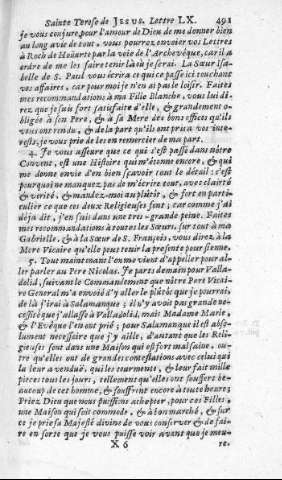 Sainte Terese de JESUS. Lettre LX. 491
je vous conjure, pour l'amour de Dieu de me donner bien
au long avie de tout. vous pourrez envoier vos Lettres
à Roch de Huëarte par la voie de l'Archevêque, car il a
ordre de me les faire tenir là où je serai. La Sœur Isa-
belle de S. Paul vous écrira ce qui se passe ici touchant
vos affaires, car pour moi je n'en ai pas le loisir. Faites
mes recommandations à ma Fille Blanche, vous lui di-
rez que je suis fort satisfaite d'elle, & grandement o-
bligée à son Pere, & à sa Mere des bons offices qu'ils
vous ont rendu, & de la part qu'ils ont pris à vos inte-
rests, je vous prie de les en remercier de ma part.
4. Je vous assure que ce qui s'est passé dans nôtre
Convent, est une Histoire qui m'étonne encore, & qui
me donne envie d'en bien sçavoir tout le détail: c'est
pourquoi ne manquez pas de m'écrire tout, avec clairté
& verité, & mandez-moi au plûtôt, & fort en parti-
culier ce que ces deux Religieuses font; car comme j'ai
déja dit, j'en suis dans une tres-grande peine. Faites
mes recommandations à toutes les Sœurs, sur tout à ma
Gabrielle, & à la Sœur de S. François, vous direz à la
Mere Vicaire qu'elle peut tenir la presente pour sienne.
5. Tout maintenant l'on me vient d'appeller pour al-
ler parler au Pere Nicolas. Je parts demain pour Valla-
dolid, suivant le Commandement que nôtre Pere Vicai-
re General m'a envoié d'y aller le plûtôt que je pourrai,
de là j'irai à Salamanque; il n'y avoit pas grande ne-
cessité que j'allasse à Valladolid, mais Madame Marie,
& l'Evêque l'en ont prié; pour Salamanque il est abso-
lument necessaire que j'y aille, d'autant que les Reli-
gieuses sont dans une Maison qui est fort malsaine, ou-
tre qu'elles ont de grandes contestations avec celui qui
la leur a venduë, qui les tourmente, & leur fait mille
pieces tous les jours, tellement qu'elles ont souffert be-
aucoup de cet homme, & souffrent encore à toute heure;
Priez Dieu que nous puissions acheter, pour ces Filles,
une Maison qui soit commode, & à bon marché, & sur
ce je prie sa Majesté divine de vous conserver & de fai-
re en sorte que je vous puisse voir avant que je meu-
X 6 re.